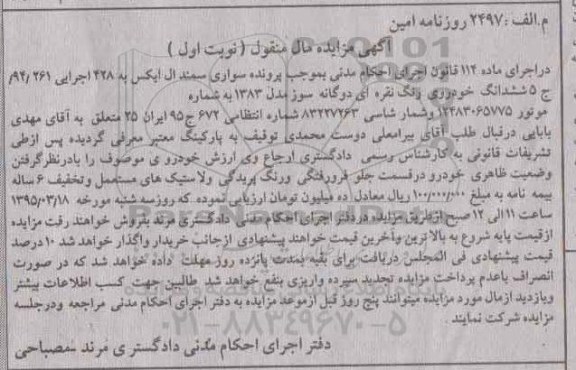 م.الف : ۲۴۹۷ روزنامه امین
آگهی مزایده مال منقول ( نوبت اول )
دراجرای ماده ۱۱۴ قانون اجرای احکام مدنی بموجب پرونده سواری سمند ال ایکس به ۴۲۸ اجرایی ۲۶۱ /۹۴/
ج ۵ ششدانگ خودروی رنگ نقره ای دوگانه سوز مدل ۱۳۸۳ به شماره
موتور ۱۲۴۸۳۰۶۵۷۷۵ وشمار شاسی ۸۳۲۲۷۲۶۳ شماره انتظامی ۶۷۲ ج ۹۵ ایران ۲۵ متعلق به آقای مهدی
بابایی درقبال طلب آقای بیرامعلی دوست محمدی توقیف به پارکینگ معتبر معرفی گردیده پس ازطی
تشریفات قانونی به کارشناس رسمی دادگستری ارجاع وی ارزش خودرو ی موصوف را بادرنظرگرفتن
وضعیت ظاهری خودرو درقسمت جلو فرورفتگی ورنگ پریدگی ولاستیک های مستعمل وتخفیف ۶ ساله
بیمه نامه به مبلغ ۱۰۰/۰۰۰/۰۰۰ ریال معادل ده میلیون تومان ارزیابی نموده که روزسه شنبه مورخه ۱۳۹۵/۰۳/۱۸
ساعت ۱۱ الی ۱۲ صبح ازطریق مزایده دردفتر اجرای احکام مدنی دادگستری مرند بفروش خواهند رفت مزایده
ازقیمت پایه شروع به بالا ترین وآخرین قیمت خواهند پیشنهادی ازجانب خریدار واگذار خواهد شد ۱۰ درصد
قیمت پیشنهادی فی المجلس دریافت برای بقیه بمدت پانزده روز مهلت داده خواهد شد که در صورت
انصراف یاعدم پرداخت مزایده تجدید سپرده واریزی بنفع خواهد شد طالبین جهت کسب اطلاعات بیشتر
وبازدید ازمال مورد مزایده میتوانند پنج روز قبل ازموعد مزایده به دفتر اجرای احکام مدنی مراجعه ودرجلسه
مزایده شرکت نمایند .
۰۲۱-۸۸۳۴۹۶۷۰-۵
دفتر اجرای احکام مدنی دادگستری مرند مصباحی